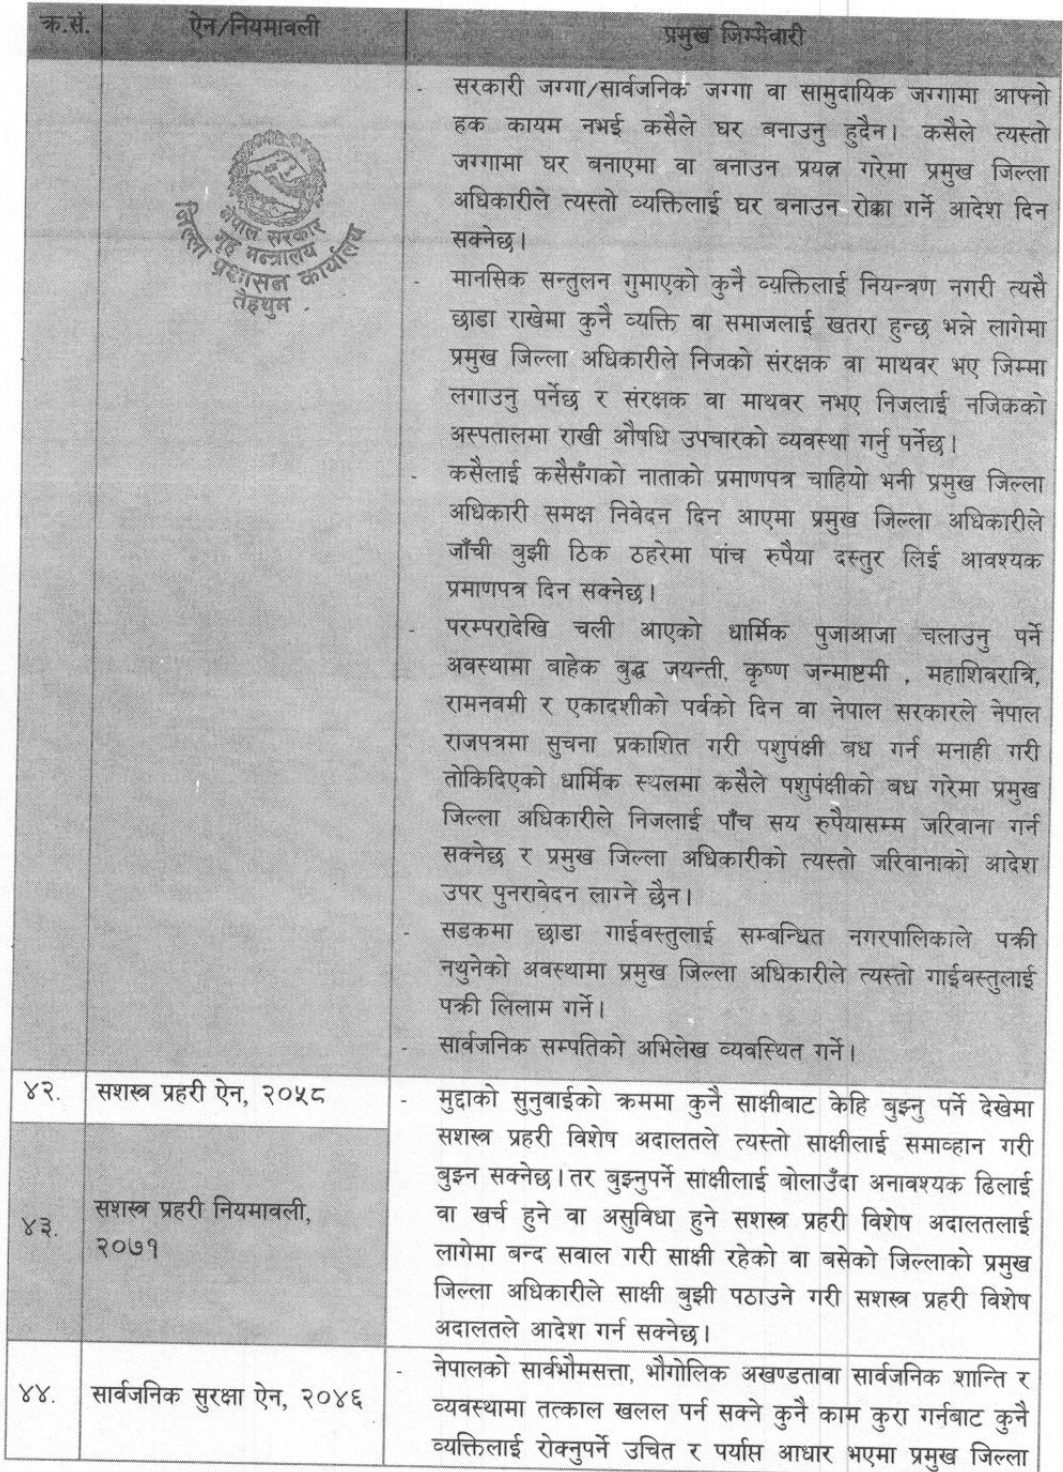 क्र.सं. ऐन/नियमावली प्रमुख जिम्मेवारी
- सरकारी जग्गा/सार्वजनिक जग्गा वा सामुदायिक जग्गामा आफ्नो
हक कायम नभई कसैले घर बनाउनु हुदैन। कसैले त्यस्तो
जग्गामा घर बनाएमा वा बनाउन प्रयत्न गरेमा प्रमुख जिल्ला
अधिकारीले त्यस्तो व्यक्तिलाई घर बनाउन रोक्का गर्ने आदेश दिन
सक्नेछ।
नेपाल सरकार
गृह मन्त्रालय
जिल्ला प्रशासन कार्यालय
तेह्रथुम
- मानसिक सन्तुलन गुमाएको कुनै व्यक्तिलाई नियन्त्रण नगरी त्यसै
छाडा राखेमा कुनै व्यक्ति वा समाजलाई खतरा हुन्छ भन्ने लागेमा
प्रमुख जिल्ला अधिकारीले निजको संरक्षक वा माथवर भए जिम्मा
लगाउनु पर्नेछ र संरक्षक वा माथवर नभए निजलाई नजिकको
अस्पतालमा राखी औषधि उपचारको व्यवस्था गर्नु पर्नेछ।
- कसैलाई कसैसँगको नाताको प्रमाणपत्र चाहियो भनी प्रमुख जिल्ला
अधिकारी समक्ष निवेदन दिन आएमा प्रमुख जिल्ला अधिकारीले
जाँची बुझी ठिक ठहरेमा पांच रुपैया दस्तुर लिई आवश्यक
प्रमाणपत्र दिन सक्नेछ।
- परम्परादेखि चली आएको धार्मिक पुजाआजा चलाउनु पर्ने
अवस्थामा बाहेक बुद्ध जयन्ती, कृष्ण जन्माष्टमी , महाशिवरात्रि,
रामनवमी र एकादशीको पर्वको दिन वा नेपाल सरकारले नेपाल
राजपत्रमा सुचना प्रकाशित गरी पशुपंक्षी बध गर्न मनाही गरी
तोकिदिएको धार्मिक स्थलमा कसैले पशुपंक्षीको बध गरेमा प्रमुख
जिल्ला अधिकारीले निजलाई पाँच सय रुपैयासम्म जरिवाना गर्न
सक्नेछ र प्रमुख जिल्ला अधिकारीको त्यस्तो जरिवानाको आदेश
उपर पुनरावेदन लाग्ने छैन।
- सडकमा छाडा गाईवस्तुलाई सम्बन्धित नगरपालिकाले पक्री
नथुनेको अवस्थामा प्रमुख जिल्ला अधिकारीले त्यस्तो गाईवस्तुलाई
पक्री लिलाम गर्ने।
- सार्वजनिक सम्पतिको अभिलेख व्यवस्थित गर्ने।
४२. सशस्त्र प्रहरी ऐन, २०५८
४३. सशस्त्र प्रहरी नियमावली,
२०७१
- मुद्दाको सुनुवाईको क्रममा कुनै साक्षीबाट केहि बुझ्नु पर्ने देखेमा
सशस्त्र प्रहरी विशेष अदालतले त्यस्तो साक्षीलाई समाव्हान गरी
बुझ्न सक्नेछ।तर बुझ्नुपर्ने साक्षीलाई बोलाउँदा अनावश्यक ढिलाई
वा खर्च हुने वा असुविधा हुने सशस्त्र प्रहरी विशेष अदालतलाई
लागेमा बन्द सवाल गरी साक्षी रहेको वा बसेको जिल्लाको प्रमुख
जिल्ला अधिकारीले साक्षी बुझी पठाउने गरी सशस्त्र प्रहरी विशेष
अदालतले आदेश गर्न सक्नेछ।
४४. सार्वजनिक सुरक्षा ऐन, २०४६
- नेपालको सार्वभौमसत्ता, भौगोलिक अखण्डतावा सार्वजनिक शान्ति र
व्यवस्थामा तत्काल खलल पर्न सक्ने कुनै काम कुरा गर्नबाट कुनै
व्यक्तिलाई रोक्नुपर्ने उचित र पर्याप्त आधार भएमा प्रमुख जिल्ला